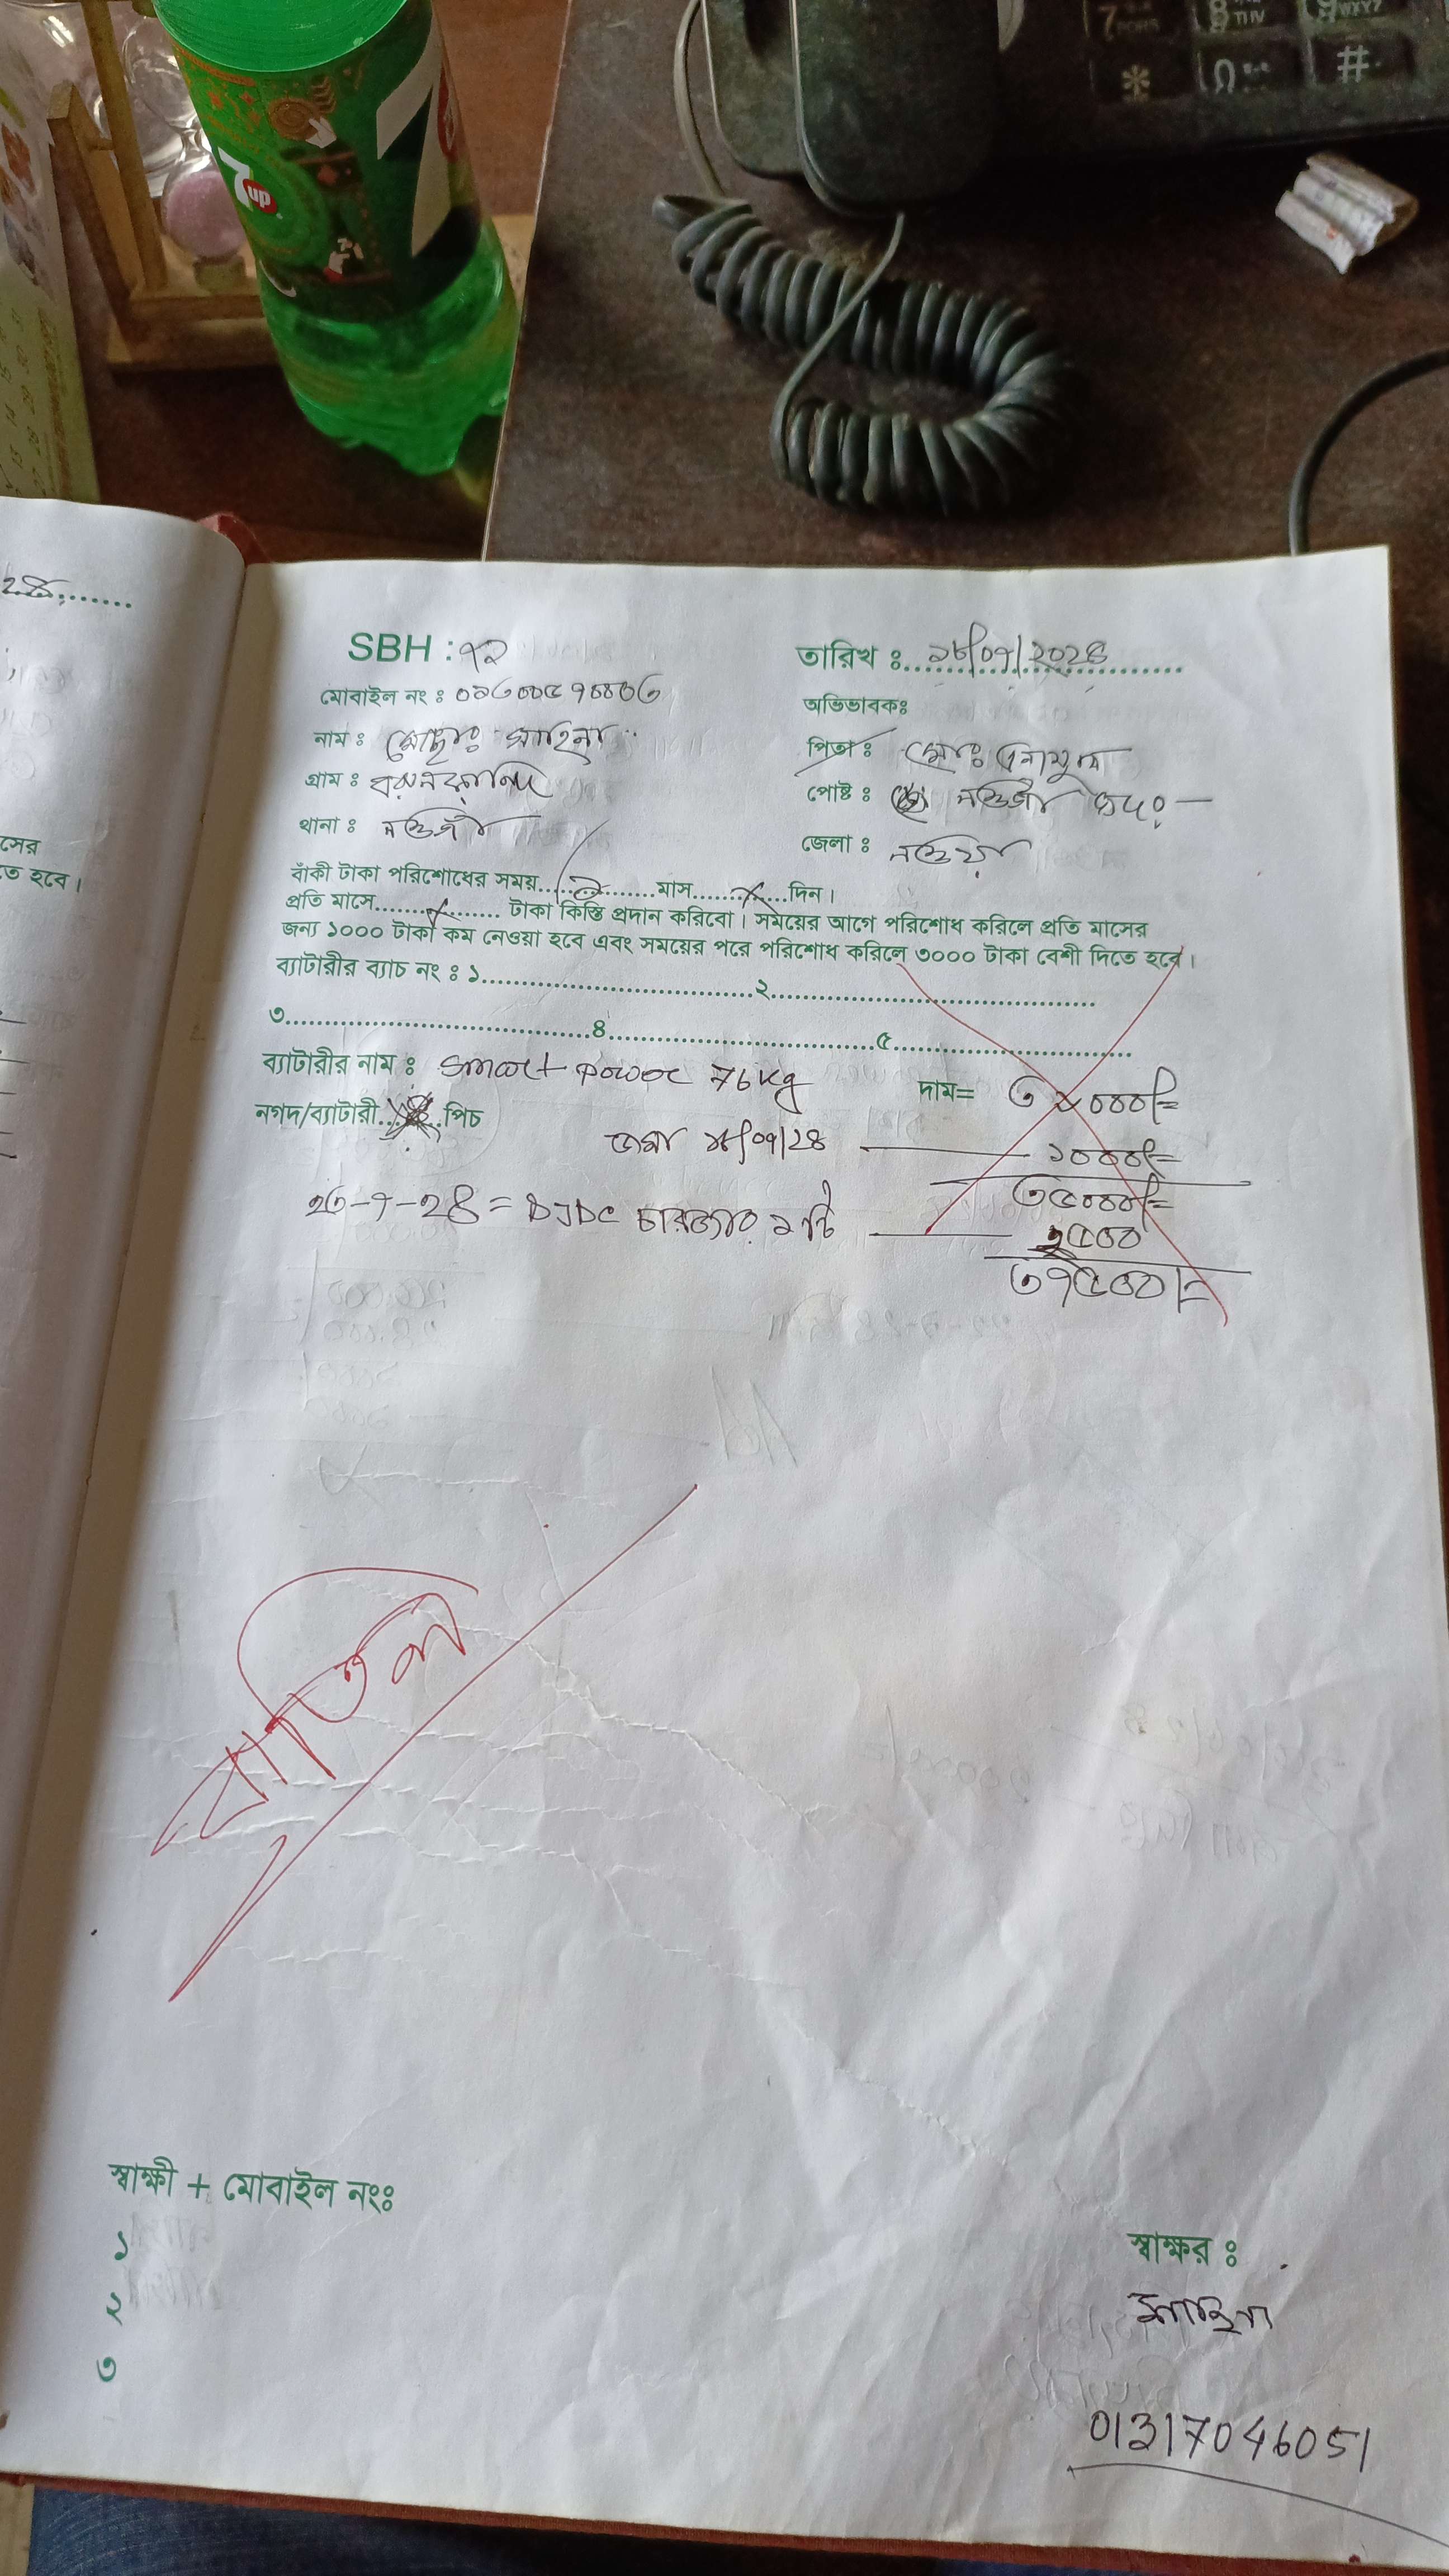 7up
7
8 TUV
9 WXYZ
* 0 #
SBH : ৭২
তারিখ : ১৮/০৭/২০২৪
মোবাইল নং :
অভিভাবকঃ
নাম : মোছাঃ সাহিনা
পিতা : মোঃ
গ্রাম :
পোষ্ট :
থানা :
জেলা :
বাঁকী টাকা পরিশোধের সময়.....১.....মাস.....×.....দিন।
প্রতি মাসে.....×..... টাকা কিস্তি প্রদান করিবো। সময়ের আগে পরিশোধ করিলে প্রতি মাসের
জন্য ১০০০ টাকা কম নেওয়া হবে এবং সময়ের পরে পরিশোধ করিলে ৩০০০ টাকা বেশী দিতে হবে।
ব্যাটারীর ব্যাচ নং : ১..........২..........
৩..........৪..........৫..........
ব্যাটারীর নাম : Smart Power 76kg
দাম=
নগদ/ব্যাটারী.....পিচ
জমা ১৮/০৭/২৪ ১০০০/=
৩৫০০০/=
২৩-৭-২৪ = BJDC চারজার ১টি ২৫০০
৩৭৫০০/=
বাতিল
স্বাক্ষী + মোবাইল নংঃ
১
২
৩
স্বাক্ষর :
সাহিনা
01317046051
সের
তে হবে।